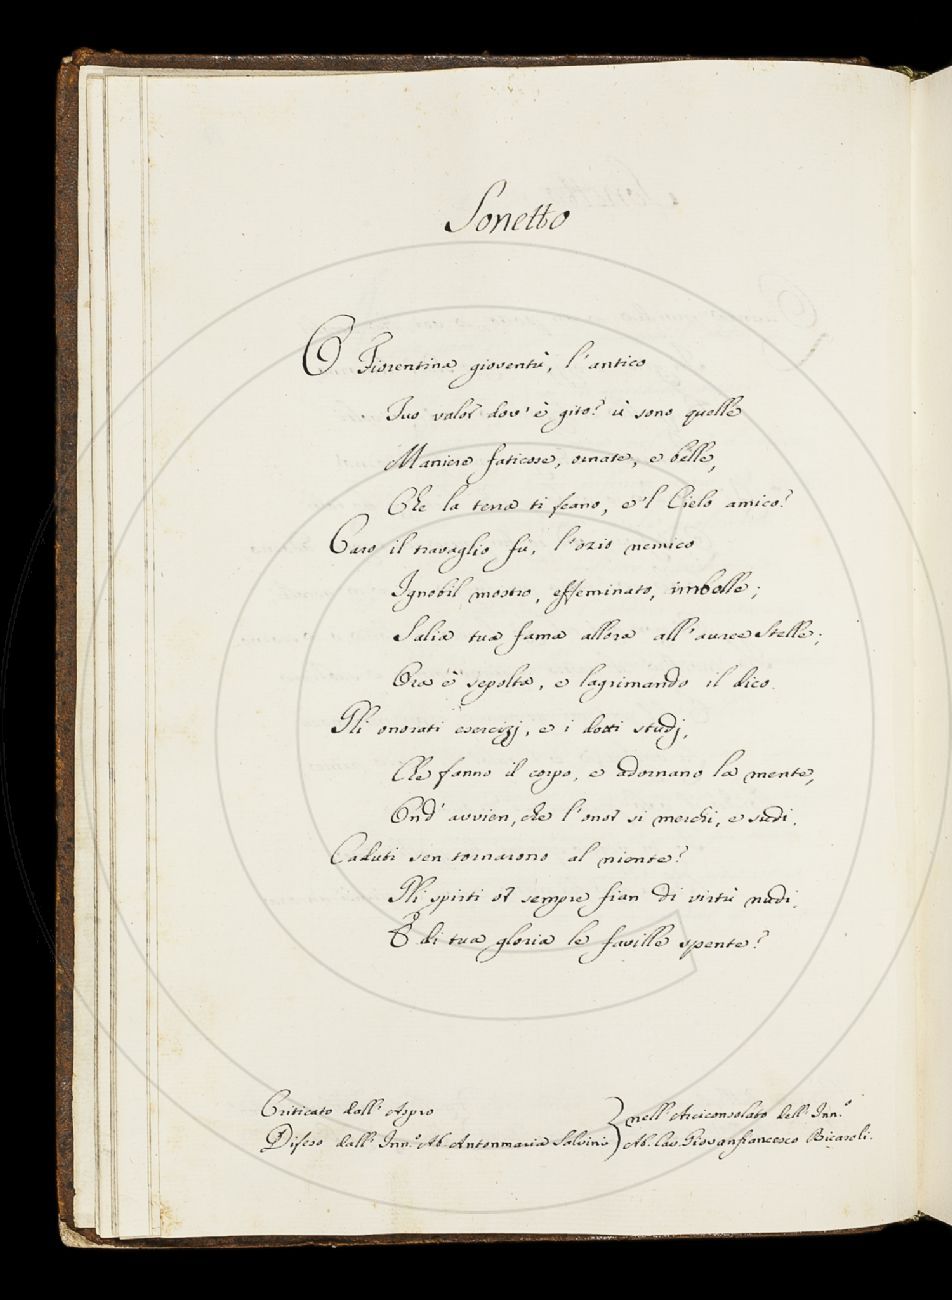 Sonetto
O Fiorentina gioventù, l'antico
Tuo valor dov'è gito? ù sono quelle
Maniere faticose, ornate, e belle,
Che la terra ti feano, e 'l Cielo amico?
Caro il travaglio fù, l'ozio nemico
Ignobil mostro, effeminato, imbelle;
Salia tua fama allora all'auree Stelle;
Ora è sepolta, e lagrimando il dico.
Gli onorati esercizj, e i dotti studj,
Che fanno il corpo, e adornano la mente,
Ond' avvien, che l'onor si merchi, e sudi.
Caduti sen tornarono al niente?
Gli spirti or sempre fian di virtù nudi.
E di tua gloria le faville spente?
Criticato dall' Aspro
Difeso dall' Inn.º Ab. Antonmaria Salvini
nell' Arciconsolato dell' Inn.º
Ab. Cav. Giovanfrancesco Ricasoli.